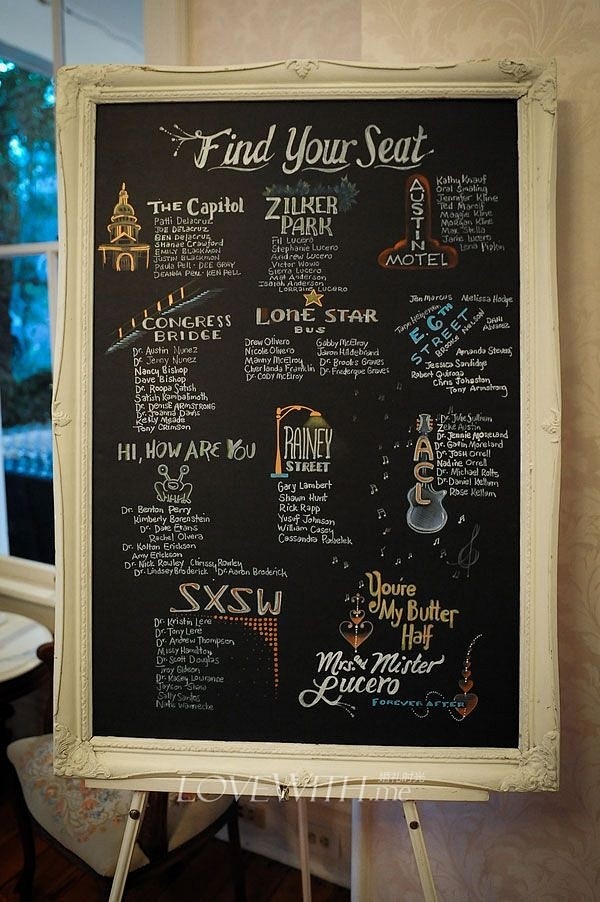 Find Your Seat
The Capitol
Patti Delacruz
Joe Delacruz
Ben Delacruz
Shanae Crawford
Emily Blackmon
Justin Blackmon
Paula Pell · Dee Gray
Deanna Pell · Ken Pell
Zilker
Park
Fil Lucero
Stephanie Lucero
Andrew Lucero
Victor Wowo
Sierra Lucero
Mat Anderson
Isaiah Anderson
Lorraine Lucero
Austin
Motel
Kathy Knauf
Oral Smaling
Jennifer Kline
Ted Marolf
Maggie Kline
Morgan Kline
Max Stella
Janie Lucero
Lena
Congress
Bridge
Dr. Austin Nunez
Dr. Jenny Nunez
Nancy Bishop
Dave Bishop
Dr. Roopa Satish
Satish Kambalimoth
Dr. Denise Armstrong
Dr. Joanna Davis
Kelly Meade
Tony Crimson
Lone Star
Bus
Drew Olivero
Nicole Olivero
Manny McElroy
Cherlanda Franklin
Dr. Cody McElroy
Gabby McElroy
Jaron Hildebrand
Dr. Brooke Graves
Dr. Frederique Graves
Jen Marcus
Melissa Hodge
E. 6th
Street
Brooke Nelson
Dani
Alvarez
Amanda Stevens
Jessica Sandidge
Robert Quiroga
Chris Johnston
Tony Armstrong
Hi, How Are You
Dr. Benton Perry
Kimberly Borenstein
Dr. Dale Evans
Rachel Olvera
Dr. Kolton Erickson
Amy Erickson
Dr. Nick Rowley Chrissy Rowley
Dr. Lindsey Broderick Dr. Aaron Broderick
Rainey
Street
Gary Lambert
Shawn Hunt
Rick Rapp
Yusuf Johnson
William Casey
Cassandra
ACL
Dr. Julie Sullivan
Zeke Austin
Dr. Jennie Moreland
Dr. Gavin Moreland
Dr. Josh Orrell
Nadine Orrell
Dr. Michael Rotts
Dr. Daniel Kellum
Rose Kellum
SXSW
Dr. Kristin Lere
Dr. Tony Lere
Dr. Andrew Thompson
Missy Hamilton
Dr. Scott Douglas
Troy Gideon
Dr. Kasey Lourance
Jayson Shaw
Sally Santos
Natis Warnecke
You're
My Butter
Half
Mrs. and Mister
Lucero
Forever After
LOVEWITH.me
婚礼时光